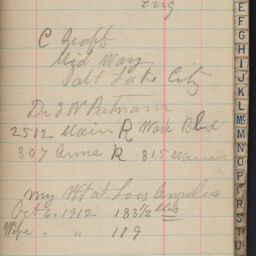 Eng
C Graff
Mid Way
Salt Lake City
Dr J W Putnam
2512 Main R Work Bld
307 Anna R 815
my Wt at Los Angeles
Oct 6, 1912 183 1/2 lbs
Wife " " 119
E
F
G
H
I
J
K
L
Mc
M
N
O
P
Q
R
S
T
U